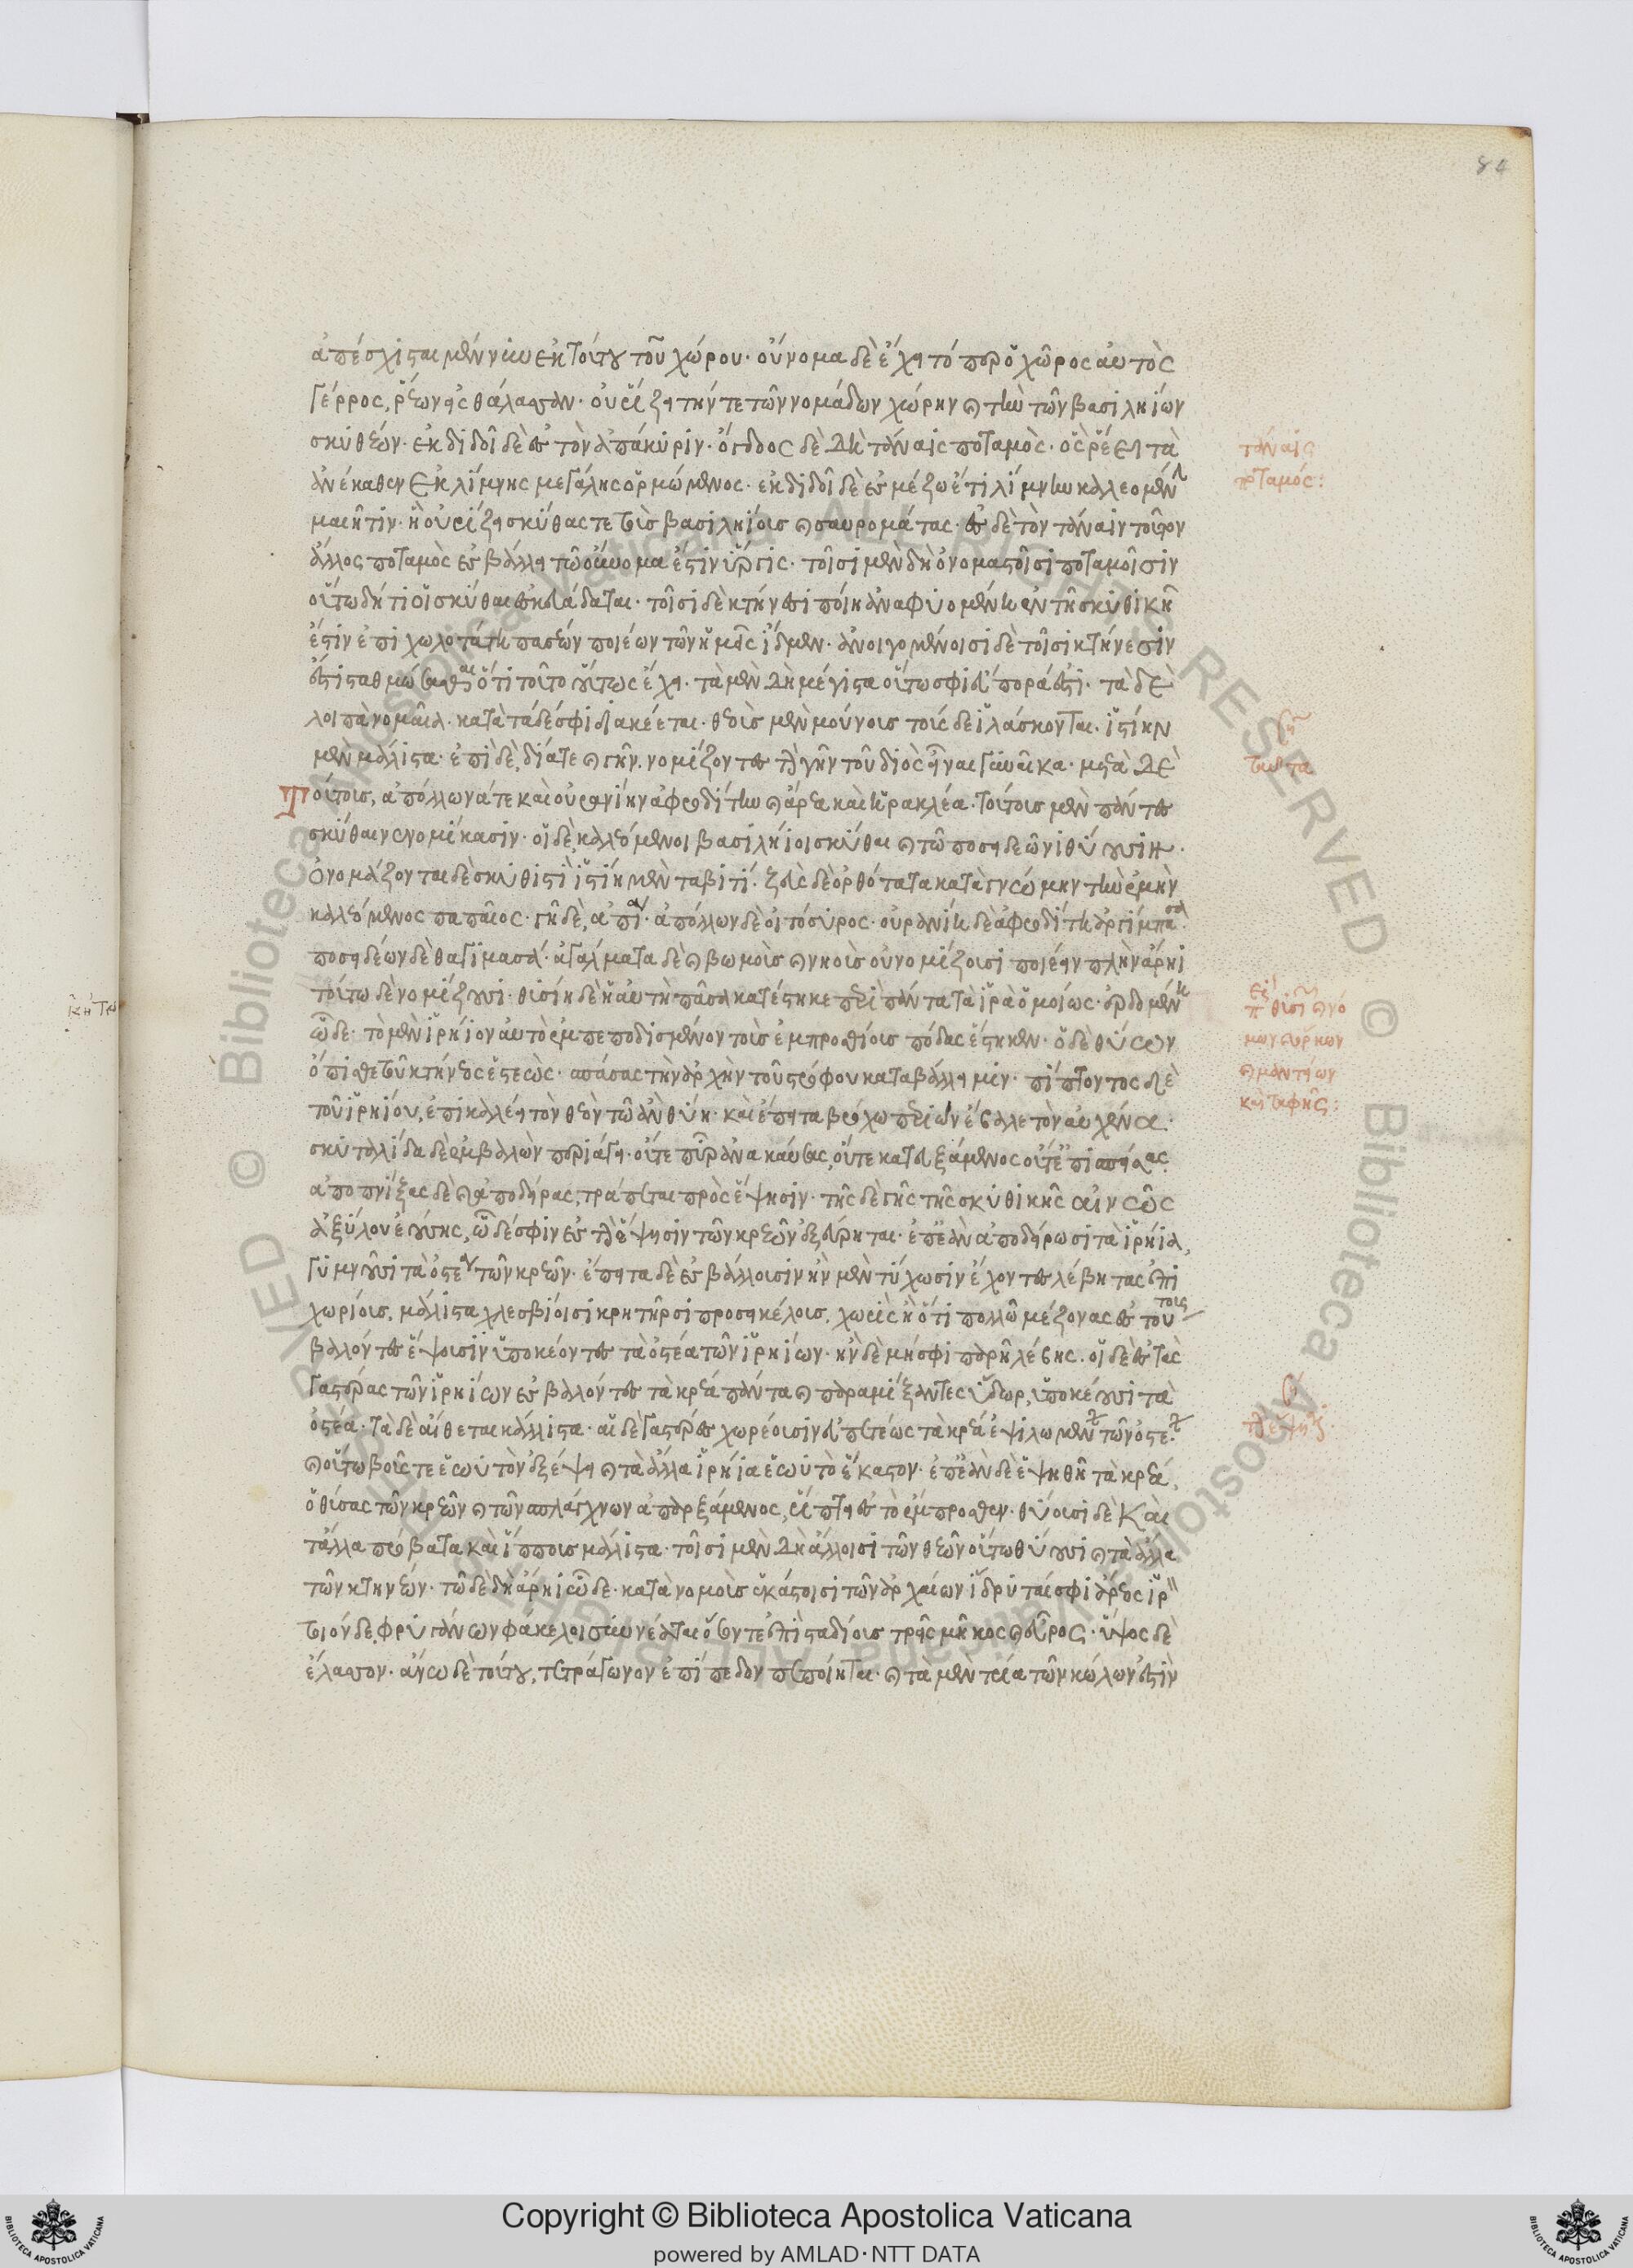 84
ἀπέσχισται μέν νυν ἐκ τούτου τοῦ χώρου· οὔνομα δὲ ἔχει τό περ ὁ χῶρος αὐτὸς
Γέρρος, ῥέων εἰς θάλασσαν· οὐρίζει τήν τε τῶν νομάδων χώρην καὶ τὴν τῶν βασιληίων
σκυθέων· ἐκδιδοῖ δὲ ἐς τὸν ὑπάκυριν· ὄγδοος δὲ δὴ τάναϊς ποταμὸς· ὃς ῥέει τὰ
ἀνέκαθεν ἐκ λίμνης μεγάλης ὁρμώμενος· ἐκδιδοῖ δὲ ἐς μέζω ἔτι λίμνην καλεομένην
μαιῆτιν· ἣ οὐρίζει σκύθας τε τοὺς βασιληίους καὶ σαυρομάτας· ἐς δὲ τὸν τάναϊν τοῦτον
ἄλλος ποταμὸς ἐσβάλλει τῷ οὔνομα ἐστὶν ὕργις· τοῖσι μὲν δὴ ὀνομαστοῖσι ποταμοῖσιν
οὕτω δή τι οἱ σκύθαι ἐσκευάδαται· τοῖσι δὲ κτήνεσι ποίη ἀναφυομένη ἐν τῇ σκυθικῇ
ἐστὶν ἐπιχωλοτάτη πασέων ποιέων τῶν ἡμεῖς ἴδμεν· ἀνοιγομένοισι δὲ τοῖσι κτήνεσιν
ἔστι σταθμώσασθαι ὅτι τοῦτο οὕτως ἔχει· τὰ μὲν δὴ μέγιστα οὕτω σφι εὔπορά ἐστι· τὰ δὲ
λοιπὰ νόμαια· κατὰ τάδε σφι διακέεται· θεοὺς μὲν μούνους τούσδε ἱλάσκονται· ἱστίην
μὲν μάλιστα· ἐπὶ δὲ, δία τε καὶ γῆν· νομίζοντες τὴν γῆν τοῦ διὸς εἶναι γυναῖκα· μετὰ δὲ
τούτους, ἀπόλλωνά τε καὶ οὐρανίην ἀφροδίτην καὶ ἄρεα καὶ ἡρακλέα· τούτους μὲν πάντες
σκύθαι νενομίκασιν· οἱ δὲ καλεόμενοι βασιλήιοι σκύθαι καὶ τῷ ποσειδέωνι θύουσιν·
ὀνομάζονται δὲ σκυθιστὶ ἱστίη μὲν ταβιτί· ζεὺς δὲ ὀρθότατα κατὰ γνώμην τὴν ἐμὴν
καλεόμενος παπαῖος· γῆ δὲ, ἀπί· ἀπόλλων δὲ οἰτόσυρος· οὐρανίη δὲ ἀφροδίτη ἀρτίμπασα·
ποσειδέων δὲ θαγιμασά· ἀγάλματα δὲ καὶ βωμοὺς καὶ νηοὺς οὐ νομίζουσι ποιέειν πλὴν ἄρηι
τούτῳ δὲ νομίζουσι· θυσίη δὲ ἡ αὐτὴ πᾶσα κατέστηκε περὶ πάντα τὰ ἱρὰ ὁμοίως· ἐρδομένη
ὧδε· τὸ μὲν ἱρήιον αὐτὸ ἐμπεποδισμένον τοὺς ἐμπροσθίους πόδας ἕστηκεν· ὁ δὲ θύων
ὄπισθε τοῦ κτήνεος ἑστεώς· σπάσας τὴν ἀρχὴν τοῦ στρόφου καταβάλλει μιν· πίπτοντος δὲ
τοῦ ἱρηίου, ἐπικαλέει τὸν θεὸν τῷ ἂν θύῃ· καὶ ἔπειτα βρόχῳ περὶ ὦν ἔβαλε τὸν αὐχένα·
σκυταλίδα δὲ ἐμβαλὼν περιάγει· οὔτε πῦρ ἀνακαύσας, οὔτε καταρξάμενος οὔτ' ἐπισπείσας
ἀποπνίξας δὲ καὶ ἀποδείρας, τράπεται πρὸς ἕψησιν· τῆς δὲ γῆς τῆς σκυθικῆς αἰνῶς
ἀξύλου ἐούσης, ὧδέ σφιν ἐς τὴν ἕψησιν τῶν κρεῶν ἐξεύρηται· ἐπεὰν ἀποδείρωσι τὰ ἱρήια,
γυμνοῦσι τὰ ὀστέα τῶν κρεῶν· ἔπειτα δὲ ἐσβάλλουσιν ἢν μὲν τύχωσιν ἔχοντες λέβητας ἐπι
χωρίους, μάλιστα λεσβίοισι κρητῆρσι προσεικέλους, χωρὶς ἢ ὅτι πολλῷ μέζονας ἐς τούτους
βαλόντες ἕψουσιν ὑποκέοντες τὰ ὀστέα τῶν ἱρηίων· ἢν δὲ μή σφι παρῇ λέβης· οἱ δὲ ἐς τὰς
γαστέρας τῶν ἱρηίων ἐσβαλόντες τὰ κρέα πάντα καὶ παραμίξαντες ὕδωρ, ὑποκέουσι τὰ
ὀστέα· τὰ δὲ αἴθεται κάλλιστα· αἱ δὲ γαστέρες χωρέουσιν εὐπετέως τὰ κρέα ἐψιλωμένα τῶν ὀστέων·
καὶ οὕτω βοῦς τε ἑωυτὸν ἐξέψει καὶ τὰ ἄλλα ἱρήια ἑωυτὸ ἕκαστον· ἐπεὰν δὲ ἑψηθῇ τὰ κρέα,
ὁ θύσας τῶν κρεῶν καὶ τῶν σπλάγχνων ἀπαρξάμενος, ῥίπτει ἐς τὸ ἔμπροσθεν· θύουσι δὲ καὶ
τἄλλα πρόβατα καὶ ἵππους μάλιστα· τοῖσι μὲν δὴ ἄλλοισι τῶν θεῶν οὕτω θύουσι καὶ τὰ ἄλλα
τῶν κτηνέων· τῷ δὲ δὴ ἄρηι ὧδε· κατὰ νομοὺς ἑκάστοισι τῶν ἀρχαίων ἵδρυταί σφι ἄρεος ἱρ
τοιόνδε. φρυγάνων φάκελοι συννενέαται ὅσον τε ἐπὶ σταδίους τρεῖς μῆκος καὶ εὖρος· ὕψος δὲ
ἔλασσον· ἄνω δὲ τούτου, τετράγωνον ἐπίπεδον πεποίηται· καὶ τὰ μὲν τρία τῶν κώλων ἐστὶν
τάναϊς
ποταμός: